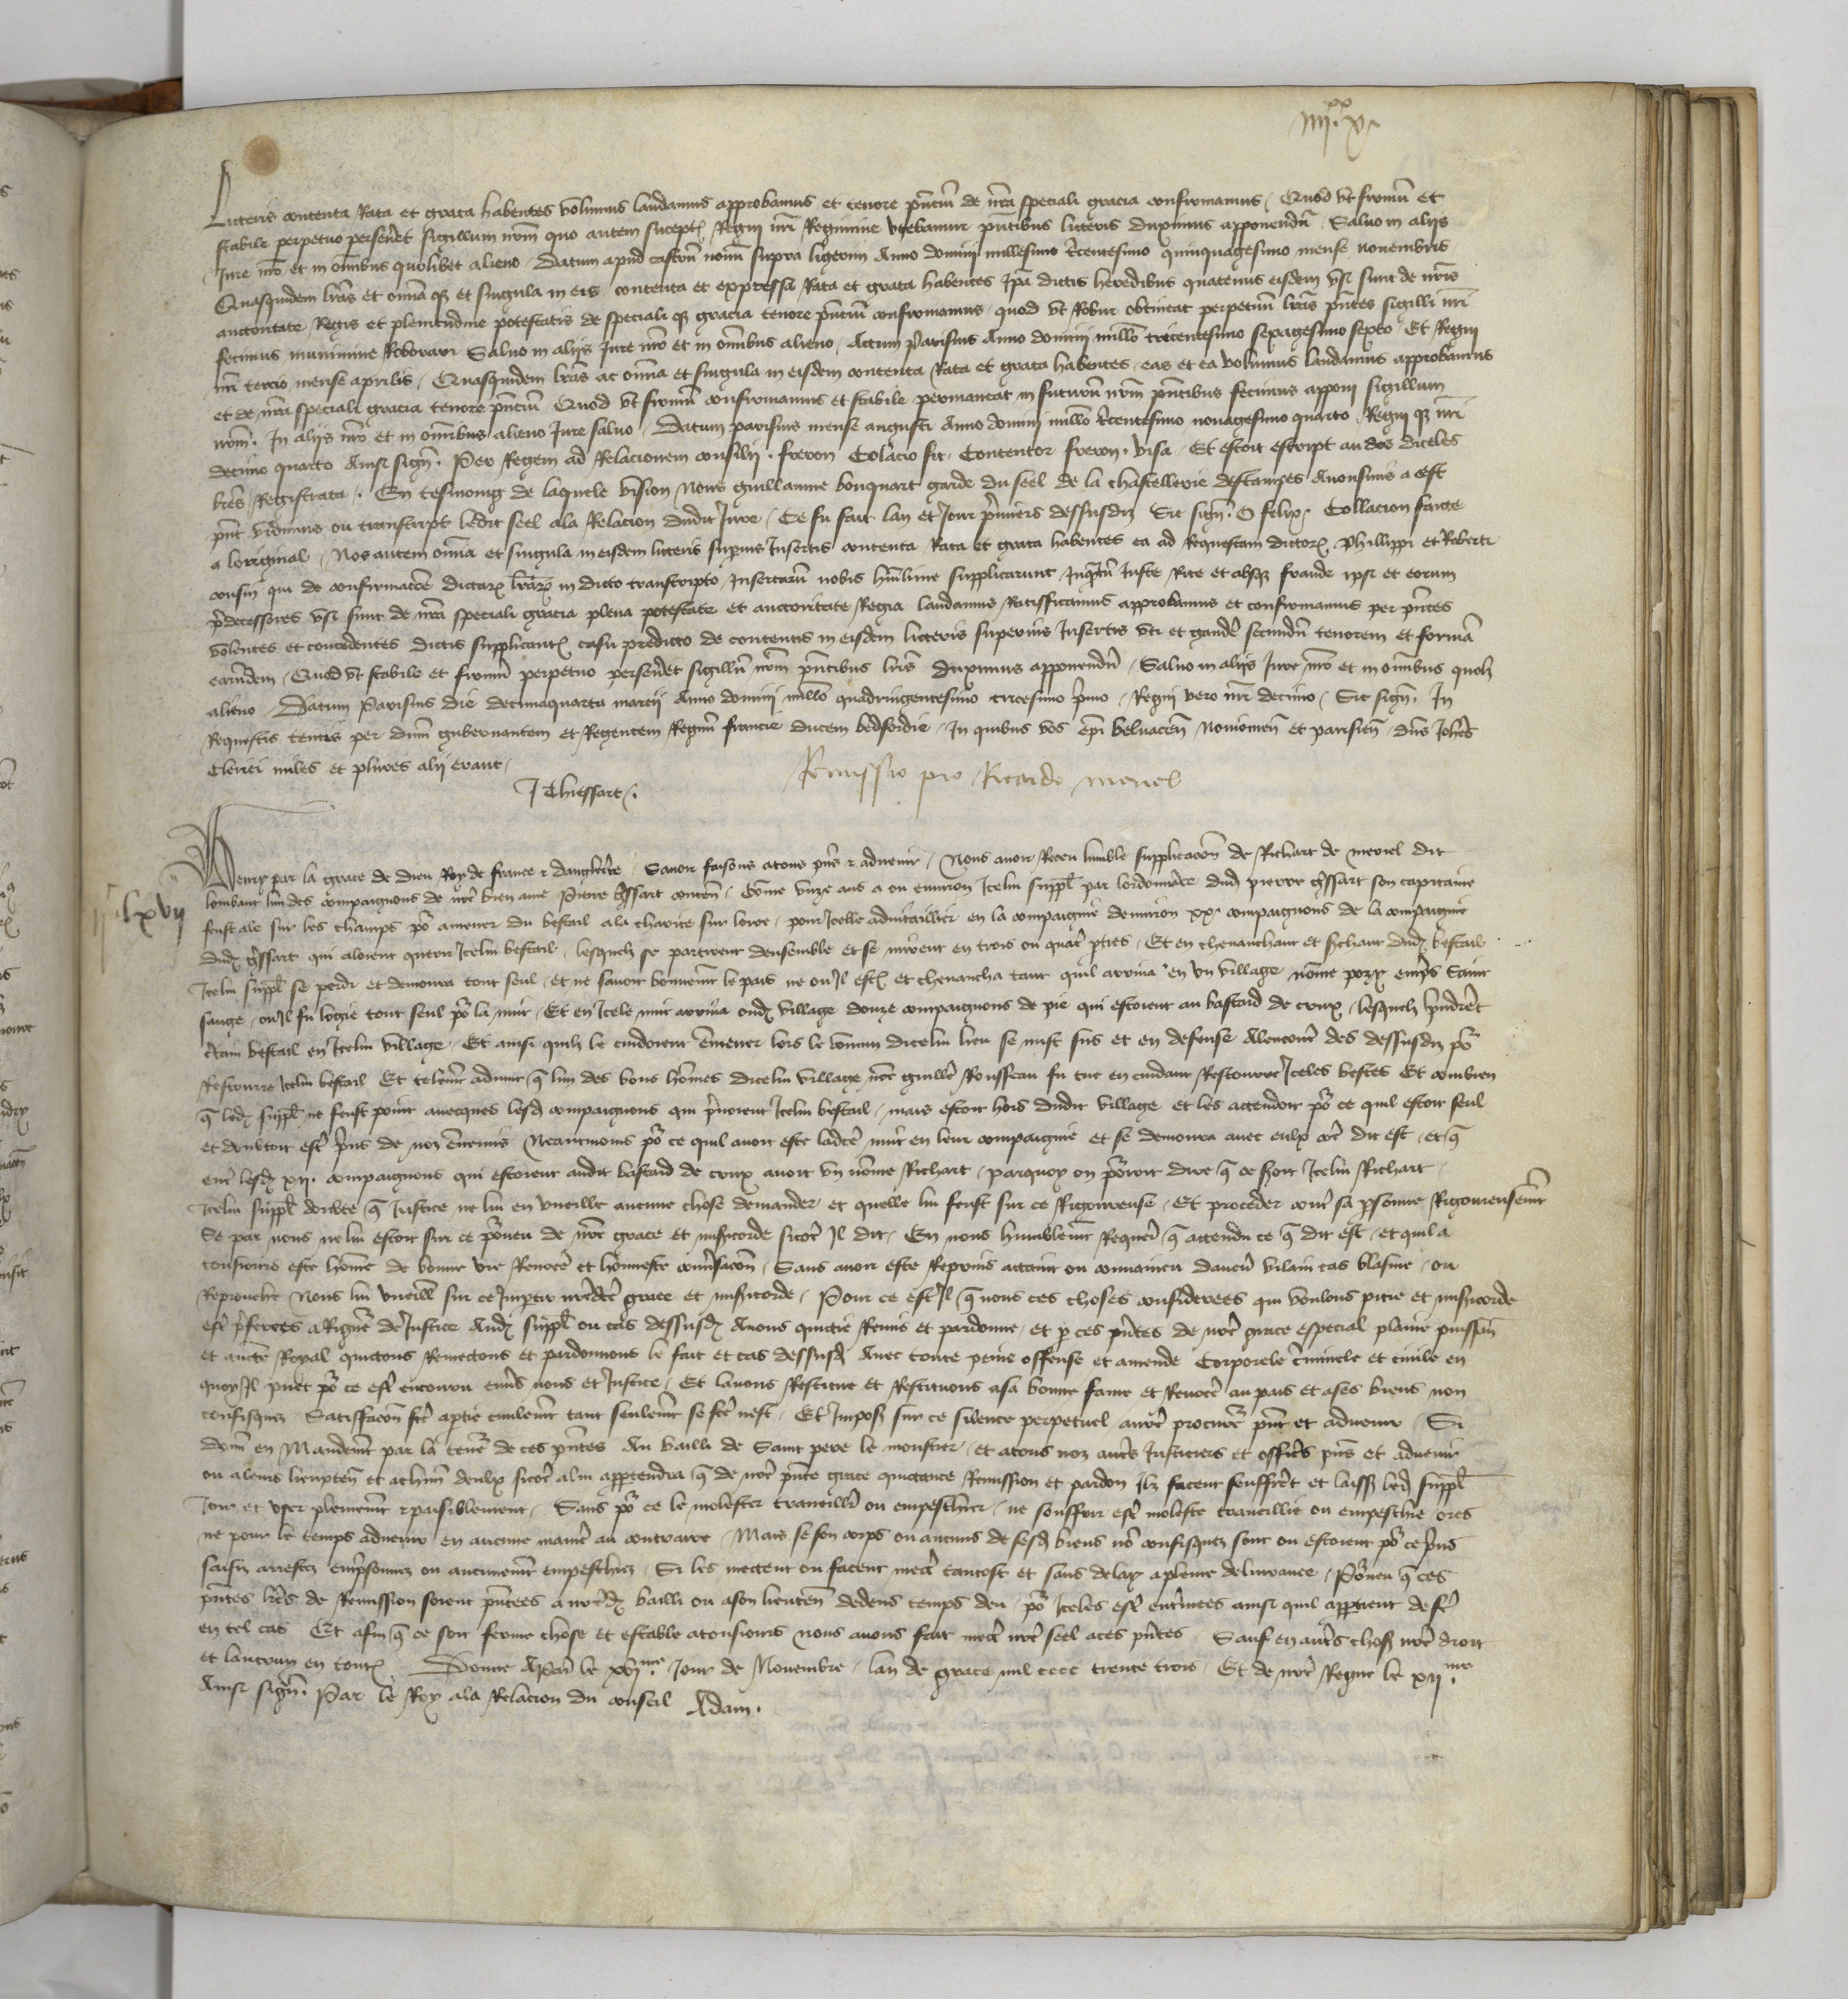 iiii xx v
Litteris contenta Rata et grata habentes volumus laudamus approbamus et tenore pñcium de nrã speciali gracia confirmamus / Quod vt firmũ et
stabile perpetuo perseueret sigillum nrm̃ quo autem suscept Regni nrĩ Regimine vtebamur pñtibus litteris duximus apponendũ / Saluo in aliis
Jure nrõ et in om̃ibus quolibet alieno / Datum apud castrũ nouũ supra ligerim Anno domini millesimo trcentesimo quinquagesimo mense nouembris
Quasquidem lrãs et omĩa et singula in eis contenta et expressa Rata et grata habentes Ipã dictis heredibus quatenus eisdem vsi sunt de nrĩs
auctoritate Regis et plenitudine potestatis de speciali qz gracia tenore pñcium confirmamus / quod vt Robur obtineat perpetuũ lrãs pñtes sigilli nrĩ
fecimus munimine Roborari Saluo in aliis Jure nrõ et in om̃ibus alieno / Actum Parisius Anno domini millõ tricentesimo sexagesimo sexto / Et Regni
nrĩ tercio mense aprilis / Quasquidem lrãs ac omĩa et singula in eisdem contenta Rata et grata habentes / eas et ea volumus laudamus approbamus
et de nrã speciali gracia tenore pñcium Quod vt firmũ confirmamus et stabile permaneat in futurũ nrm̃ pñtibus fecimus apponi sigillum
nrm̃ . In aliis nrõ et in om̃ibus alieno Jure saluo / Datum parisius mense augusti Anno domini millõ trcentesimo nonagesimo quarto / Regni qz nrĩ
decimo quarto Ainsi signẽ . Per Regem ad Relacionem consilii . freron Colacio fit / Contentor freron . visa / Et estoit escript au dos diceles
lrẽs / Registrata / . En tesmoing de laquele vision Nous guillaume bouquart garde du seel de la chastellerie destampes Auonsmis a cest
pñt vidimus ou transcript ledit seel ala Relacion dudit Jure / Ce fu fait lan et Jour prmiers dessusdiz Sic signẽ . O felix / Collacion faicte
a loriginal / Nos autem omĩa et singula in eisdem litteris supius Insertis contenta Rata et grata habentes ea ad Requestam dictorz Phillippi et Roberti
cousin qui de confirmacõe dictarz lrãrz in dicto transcripto Insertarũ nobis hũlime supplicarunt / Inqñtũ Juste Rite et absqz fraude ipsi et eorum
prdecessores vsi sunt de nrã speciali gracia plena potestate et auctoritate Regia laudamus Ratifficamus approbamus et confirmamus per pñtes
volentes et concedentes dictis supplicant casu predicto de contentis in eisdem litteris superius Insertis vti et gaudẽ secundũ tenorem et formã
earũdem / Quod vt stabile et firmũ perpetuo perseueret sigillũ nrm̃ pñtibus lrĩs duximus apponendũ / Saluo in aliis Jure nrõ et in om̃ibus quolz
alieno / Datum Parisius die decimaquarta marcii Anno domini millõ quadringentesimo tricesimo prmo / Regni vero nrĩ decimo / Sic signẽ . In
Requestis tentis per dñm gubernantem et Regentem Regnũ francie ducem bedfordie / In quibus vos ep̃i beluaceñ Nouiomeñ et parisieñ dñs Johẽs
Clerici miles et plures alii erant /
J Chiessart / .
Remissio pro Ricardo meriel
lxvii
Henry par la grace de dieu Roy de france et dangletrre / Sauoir faisons atous pñs et aduenir / Nous auoir Receu humble supplicacõn de Richart de meriel dit
lombart lun des compaignons de nrẽ bien ame Pierre gressart conteñ / Cõme vnze ans a ou enuiron Icelui suppl par lordonnãce dudz pierre gressart son capitaine
feust ale sur les champs pour amener du bestail ala charite sur loire / pour Icelle aduitaillier en la compaignie denuiron xx compaignons de la compaignie
dudz gressart qui aloient querir Icelui bestail / lesquelz se partirent densemble et se mirent en trois ou quatre pties / Et en cheuauchant et serchant dudz bestail
Icelui suppl se perdi et demoura tout seul / et ne sauoit bonnemt le pais ne ou Il est / et cheuaucha tant quil arriua en vn village nõme pozy emprs Saint
sauge / ou Il fu logie tout seul pour la nuit / Et en Icele nuit arriua oudz village douze compaignons de pie qui estoient au bastard de coux / lesquelz prindrẽt
certain bestail en Icelui village / Et ainsi quilz le cuidoient ẽmener lors le cõmun dicelui lieu se mist sus et en defense Alencontre des dessusdiz pour
Rescourre Icelui bestail Et telemt aduint que lun des bons hõmes dicelui village nõe guille Rousseau fu tue en cuidant Rescourre Iceles bestes Et combien
que ledz suppl ne feust point auecques lesdz compaignons qui prnoient Icelui bestail / mais estoit hors dudit village et les actendoit pour ce quil estoit seul
et doubtoit estre prins de noz ẽnemis Neantmoins pour ce quil auoit este ladcte nuit en leur compaignie et se demoura auec eulx cõe dit est / et que
entre lesdz xii . compaignons qui estoient audit bastard de coux auoit vn nõme Richart / parquoy on pourroit dire que ce seroit Icelui Richart /
Icelui suppl doubte que Justice ne lui en vueille aucune chose demander et quelle lui feust sur ce Rigoureuse / Et proceder contre sa psonne Rigoureusemt
Se par nous ne lui estoit sur ce pourueu de nrẽ grace et misericorde sicõe Il dit / En nous humblemt Requerãt que actendu ce que dit est / et quil a
tousiours este hõme de bonne vie Renõee et hõnneste conusacõn / Sans auoir este Reprins actaint ou conuaincu daucũ vilain cas blasme / ou
Reprouche Nous lui vueill sur ce Impartir nrẽdcte grace et misericorde / Pour ce est Il que nous ces choses considerees qui voulons pitie et misericorde
estre prferees a Rigueur de Justice Audz suppl ou cas dessusdz Auons quictie Remis et pardonne / et p ces pñtes de nrẽ grace especial plaine puissan̄
et aucte Royal quictons Remectons et pardonnons le fait et cas dessusdz Auec toute peine offense et amende Corporele criminele et ciuile en
quoy Il puet pour ce estre encouru enuers nous et Justice / Et lauons Restitue et Restituons asa bonne fame et Renõee au pais et ases biens non
confisquez Satisfacõn fcte aptie ciuilemt tant seulemt se fcte nest / Et Imposons sur ce silence perpetuel anrẽ procureur pñt et aduenir / Si
donñ en Mandemt par la teneur de ces pñtes Au bailli de Saint pere le moustier / et atous noz autres Justiciers et officrs pñs et aduenir
ou aleurs lieuxteñ et achũn deulx sicõe alui appartendra que de nrẽ pñte grace quictance Remission et pardon Ilz facent seuffrẽt et laissẽt ledz suppl
Joir et vser plainemt et paisiblement / Sans pour ce le molester trauaillier ou empeschier / ne souffrir estre moleste trauaillie ou empeschie / ores
ne pour le temps aduenir en aucune maniere au contraire / Mais se son corps ou aucuns de sesdz biens nõ confisquez sont ou estoient pour ce prins
saisiz arrestez emprisonnez ou autremt empeschiez / Si les mectent ou facent mectre tantost et sans delay apleine deliurance / Pourueu que ces
pñtes lrẽs de Remission soient pñtees a nrẽdz bailli ou ason lieuteñ dedens temps deu / pour Iceles estre enterinees ainsi quil appartient de fre
en tel cas Et afin que ce soit ferme chose et estable atousiours nous auons fait mectre nrẽ seel aces pñtes / Sauf en autres choses nrẽ droit
et lautruy en toutes / Donne A Paris le xvime Jour de Nouembre / lan de grace mil cccc trente trois / Et de nrẽ Regne le xiime .
Ainsi signẽ . Par le Roy ala Relacion du conseil Adam .